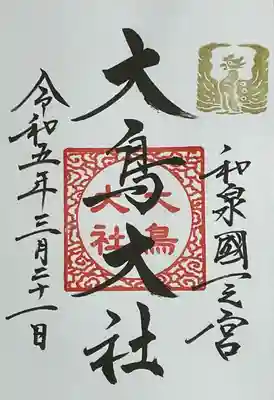 和泉國一之宮
大鳥大社
大鳥大社
令和五年三月二十一日